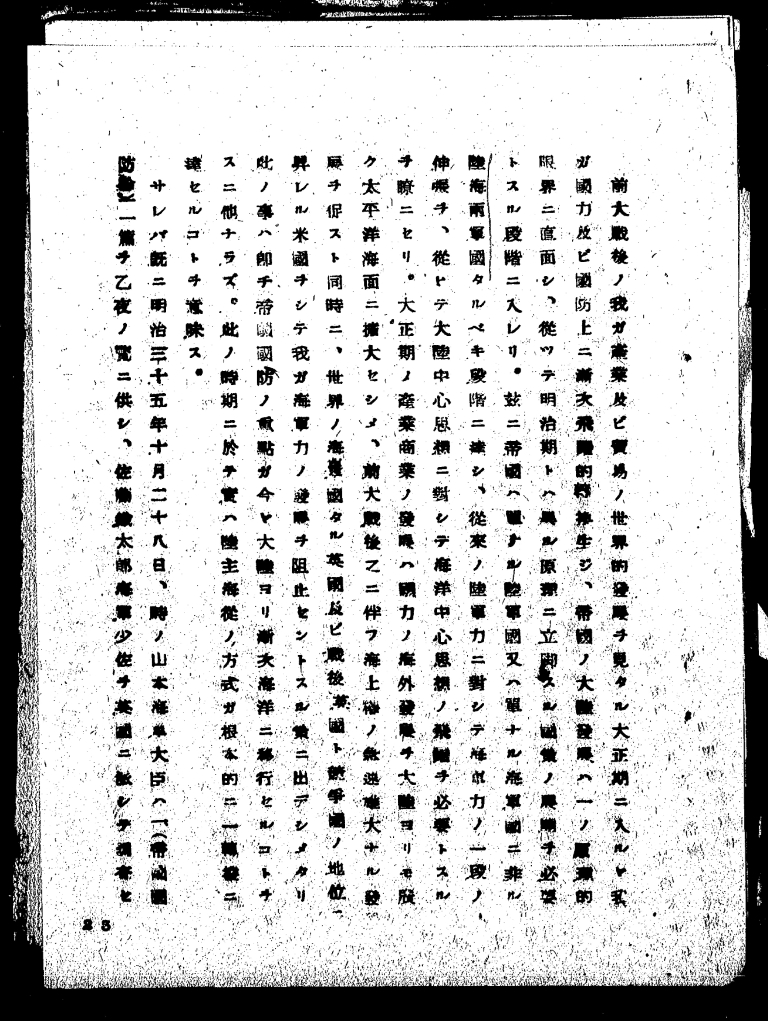 前大戰後ノ我ガ產業及ビ貿易ノ世界的發展ヲ見タル大正期ニ入ルヤ我
ガ國力及ビ國防上ニ漸次飛躍的轉換生ジ、帝國ノ大陸發展ハ一ノ原理的
限界ニ直面シ、從ツテ明治期トハ異ル原理ニ立脚スル國策ノ展開ヲ必要
トスル段階ニ入レリ。玆ニ帝國ハ單ナル陸軍國又ハ單ナル海軍國ニ非ル
陸海兩軍國タルベキ段階ニ達シ、從來ノ陸軍力ニ對シテ海軍力ノ一段ノ
伸暢ヲ、從ヒテ大陸中心思想ニ對シテ海洋中心思想ノ飛躍ヲ必要トスル
ヲ瞭ニセリ。大正期ノ產業商業ノ發展ハ國力ノ海外發展ヲ大陸ヨリモ般
ク太平洋海面ニ擴大セシメ、前大戰後之ニ伴フ海上 ノ急速 大ナル發
展ヲ促スト同時ニ、世界ノ海 國タル英國及ビ戰後英國ト競爭國ノ地位ニ
昇レル米國ヲシテ我ガ海軍力ノ發展ヲ阻止セントスル策ニ出デシメタリ
此ノ事ハ卽チ帝國國防ノ重點ガ今ヤ大陸ヨリ漸次海洋ニ移行セルコトヲ
スニ他ナラズ。此ノ時期ニ於テ實ハ陸主海從ノ方式ガ根本的ニ一轉機ニ
達セルコトヲ意味ス。
サレバ既ニ明治三十五年十月二十八日、時ノ山本海軍大臣ハ「帝國國
防論」一篇ヲ乙夜ノ覽ニ供シ、佐藤鐵太郎海軍少佐ヲ英國ニ派シテ調査セ
23